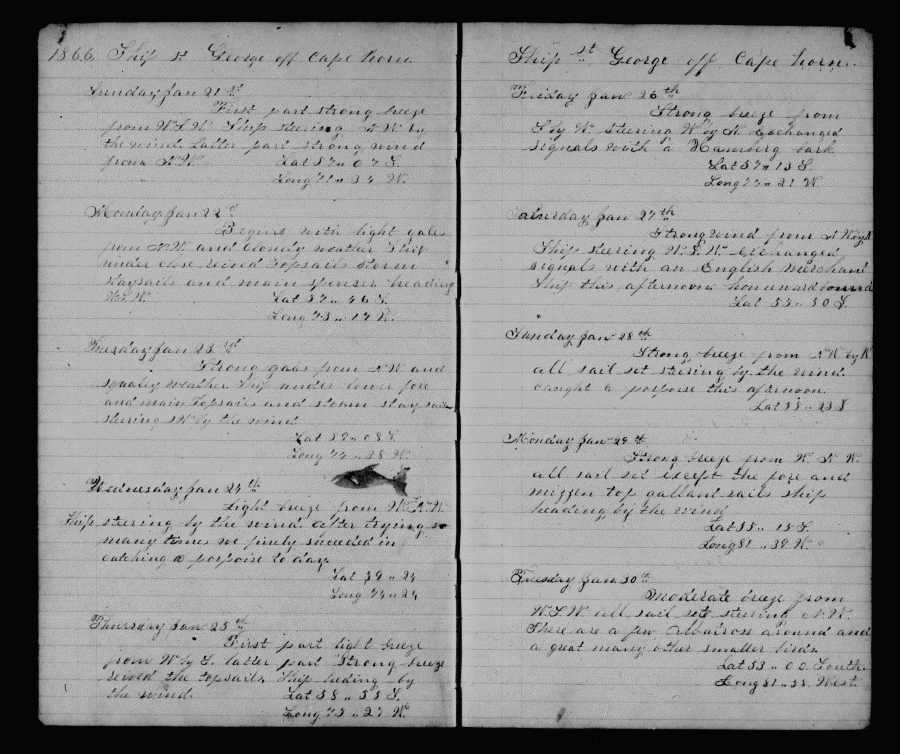 1866. Ship St George off Cape horn.
Sunday Jan 21st
First part strong breze
from W.S.W. Ship steering N.W. by
the wind. Latter part strong wind
from N.W. Lat 57 " 07 S.
Long 71 " 34 W.
Monday Jan 22d
Begins with light gales
from N.W. and cloudy weater Ship
under close reived Topsails storm
staysails and main spenser heading
W.S.W. Lat 57 " 46 S.
Long 73 " 17 W.
Tuesday Jan 23rd
Strong gaes from N.W. and
squally weather. Ship under lower fore
and main Topsails and storm stay sails
steering SW by the wind
Lat 59 " 08 S.
Long 74 " 38 W.
Wednesday Jan 24th
Light breze from W.N.W.
Ship steering by the wind. After trying so
many times we finely succeded in
catching a porpoise to day.
Lat 59 " 24
Long 74 " 24
Thursday Jan 25th
First part light breze
from W by S. latter part Strong breeze
reived the topsails. Ship heding by
the wind. Lat 58 " 55 S.
Long 75 " 27 W.
Ship St George off Cape horn.
Friday Jan 26th
Strong breze from
S by W. steering W by N. Exchanged
signals with a Hamberg bark
Lat 57 " 13 S.
Long 77 " 21 W.
Saturday Jan 27th
Strong wind from N W by N
Ship steering W.S.W. Exchanged
signals with an English merchant
Ship this afternoon homeward bound
Lat 55 " 50 S.
Sunday Jan 28th
Strong breze from N.W. by W
all sail set stering by the wind
caught a porpoise this afternoon.
Lat 55 " 23 S
Monday Jan 29th
Strong breze from W. N. W.
all sail set except the fore and
mizzen top gallant sails ship
heading by the wind
Lat 55 " 15 S.
Long 81 " 39 W.
Tuesday Jan 30th
Moderate breze from
W.S.W. all sail set steering N.W.
There are a few Albatross around and
a great many other smaller birds.
Lat 53 " 00. South.
Long 81 " 58. West